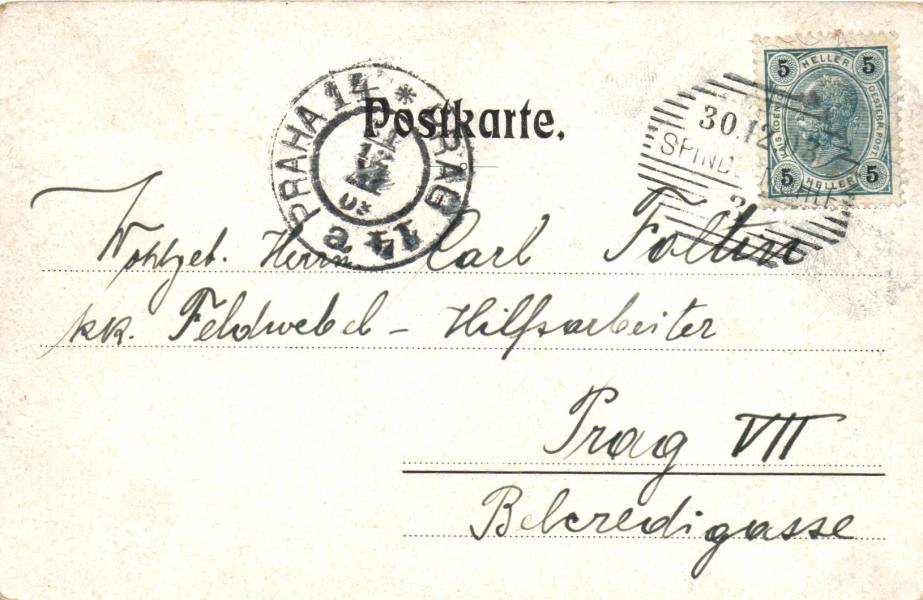 Postkarte.
PRAHA 14 * PRAG 14
a
30.12
SPIND
5 HELLER 5
5 HELLER 5
Wohlgeb. Herrn Carl Foltin
kk. Feldwebel - Hilfsarbeiter
Prag VII
Belcredigasse